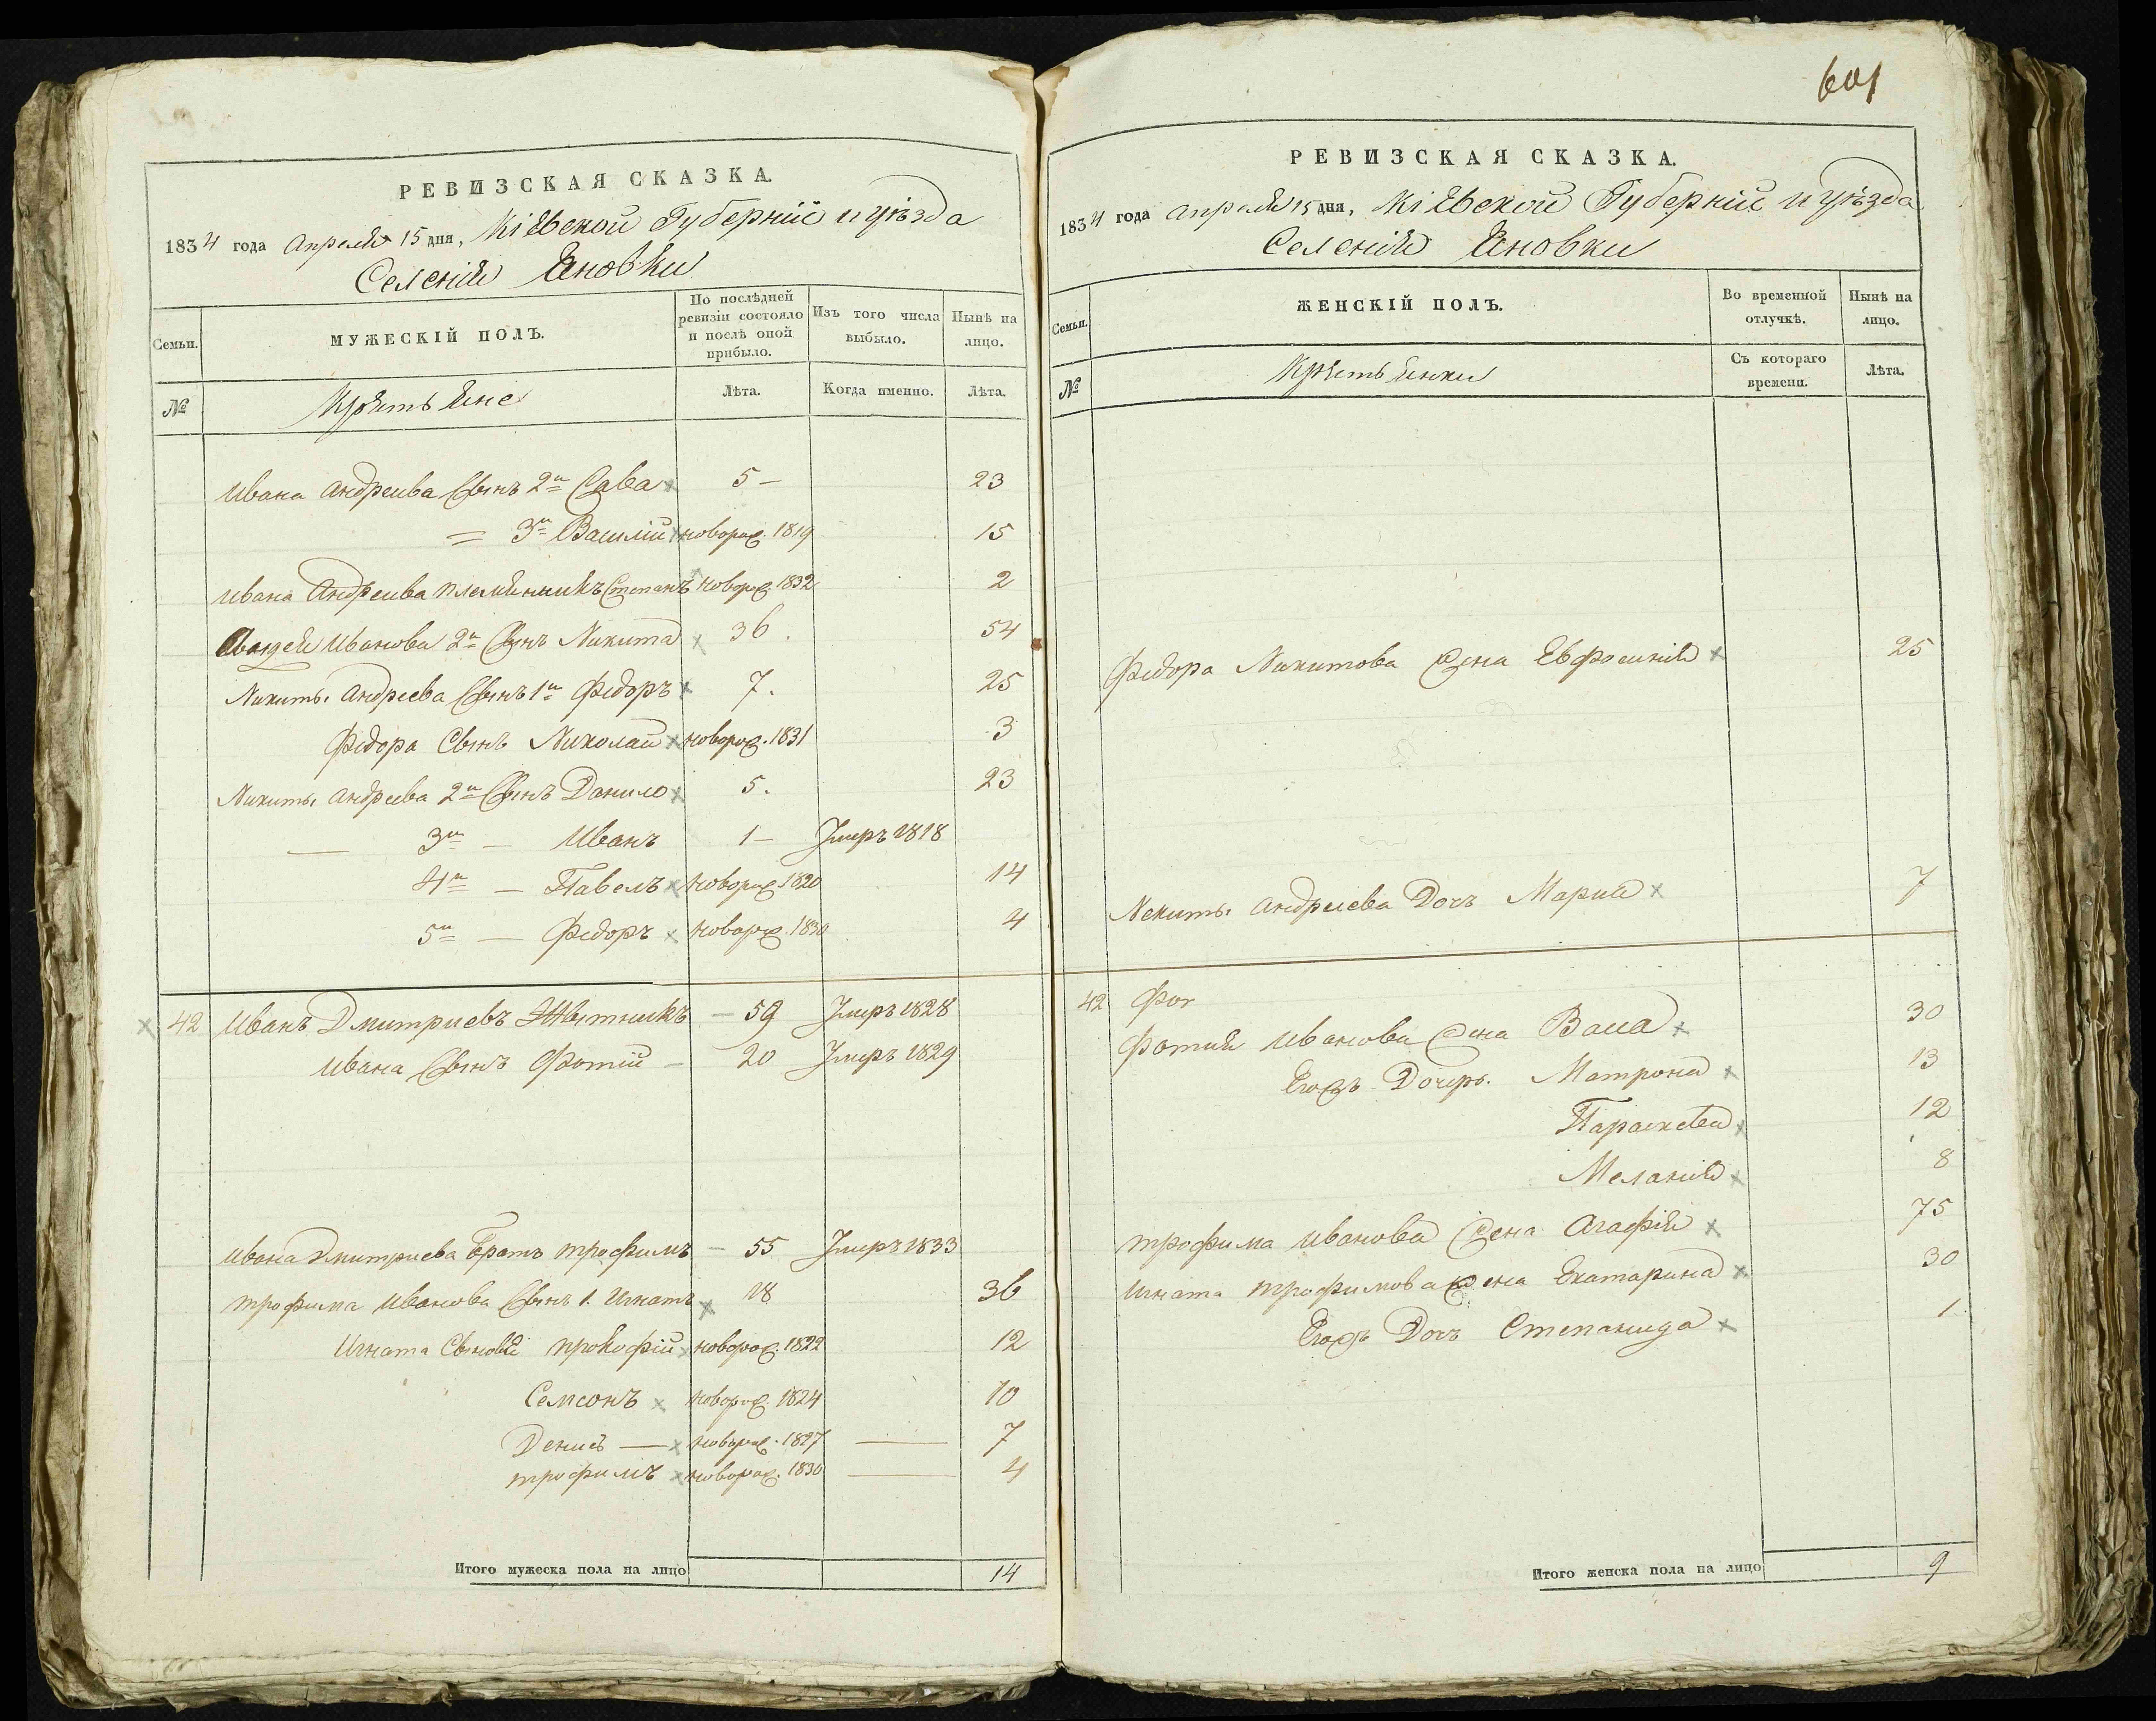 РЕВИЗСКАЯ СКАЗКА.
1834 года Апреля 15 дня, Кіевской Губерніи и уѣзда
Селенія Яновки
Семьи.
МУЖЕСКІЙ ПОЛЪ.
По послѣдней ревизіи состояло и послѣ оной прибыло.
Изъ того числа выбыло.
Нынѣ на лицо.
№
Крѣстьяне
Лѣта.
Когда именно.
Лѣта.
Ивана Андреива Сынъ 2й Сава 5 – 23
= 3й Василій новорож. 1819 15
Ивана Андреива племянникъ Степанъ новорож. 1832 2
Иванова 2й Сынъ Никита 36. 54
Никиты Андреева Сынъ 1й Федоръ 7. 25
Федора Сынъ Николай новорож. 1831 3
Никиты Андреева 2й Сынъ Данило 5. 23
— 3й — Иванъ 1 – Умеръ 1818
4й — Павелъ новорож. 1820 14
5й — Федоръ новорож. 1830 4
42 Иванъ Дмитриевъ — 59 Умеръ 1828
Ивана Сынъ Фотій – 20 Умеръ 1829
Ивана Дмитриева братъ трофимъ – 55 Умеръ 1833
трофима Иванова Сынъ 1. Игнатъ 18 36
Игната Сыновя прокофій новорож. 1822 12
Семсонъ новорож. 1824 10
Денисъ — новорож. 1827 — 7
трофимъ новорож. 1830 — 4
Итого мужеска пола на лицо 14
601
РЕВИЗСКАЯ СКАЗКА.
1834 года Апреля 15 дня, Кіевской Губерніи и уѣзда
Селенія Яновки
Семьи.
ЖЕНСКІЙ ПОЛЪ.
Во временной отлучкѣ.
Нынѣ на лицо.
№
Крѣстьянки
Съ котораго времени.
Лѣта.
Федора Никитова жена Евфросинія 25
Никиты Андреева Дочъ Мария 7
42 Фот
Фотия Иванова жена Васса 30
Егожъ Дочери. Матрона 13
Параскева 12
Мелания 8
трофима Иванова жена Агафія 75
Игната трофимова жена Екатарина 30
Егожъ Дочъ Степанида 1
Итого женска пола на лицо 9